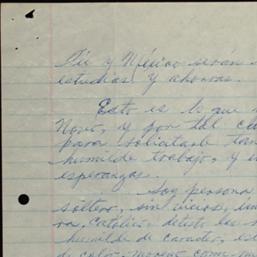 Tú y México serán
estudias y ahorras.
Esto es lo que
Novo, y por tal
para solicitarle
humilde trabajo, y
esperanzas.
Soy persona
soltero, sin vicios,
católico, detesto
humilde de caracter,
de color moreno